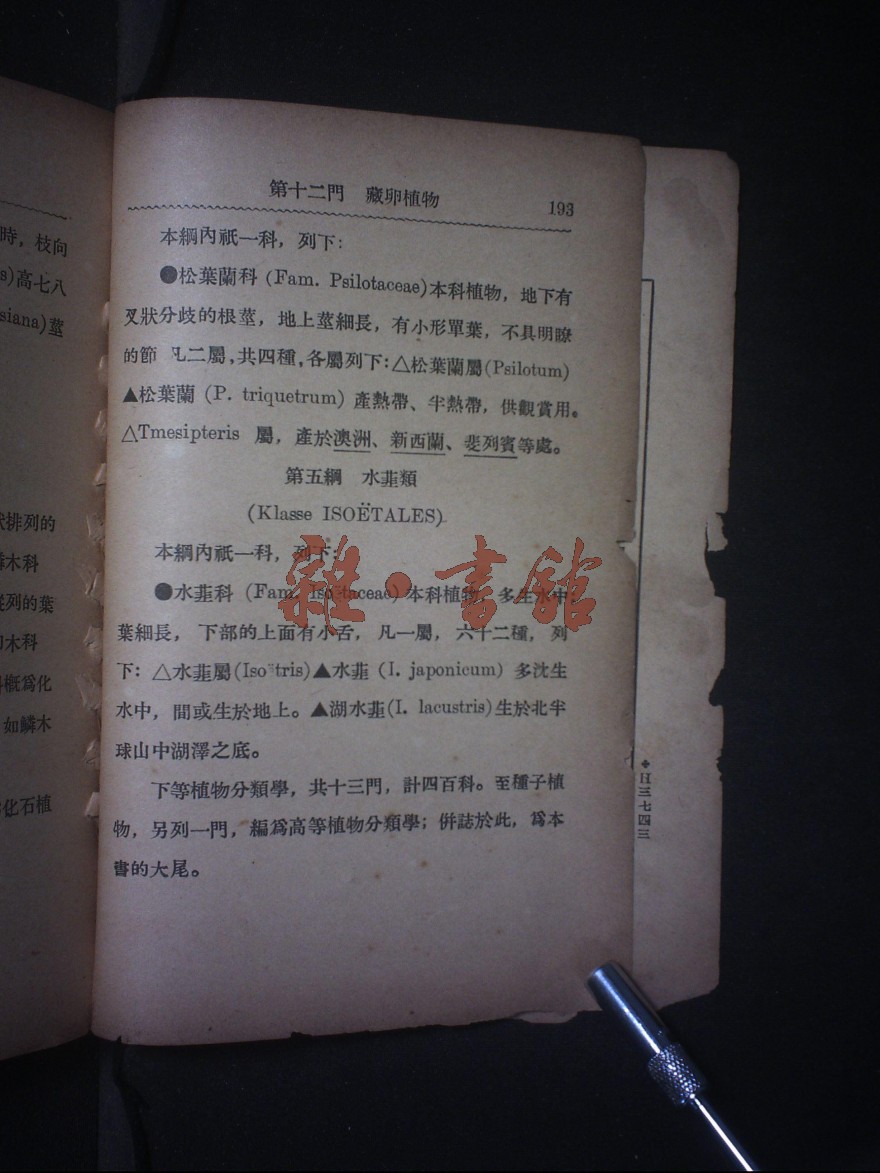 第十二門 藏卵植物 193
本綱內祇一科，列下：
●松葉蘭科 (Fam. Psilotaceae)本科植物，地下有
叉狀分歧的根莖，地上莖細長，有小形單葉，不具明瞭
的節 凡二屬，共四種，各屬列下：△松葉蘭屬(Psilotum)
▲松葉蘭 (P. triquetrum) 產熱帶、半熱帶，供觀賞用。
△Tmesipteris 屬，產於澳洲、新西蘭、斐列賓等處。
第五綱 水韮類
(Klasse ISOËTALES)
本綱內祇一科，列下：
●水韮科 (Fam. Isoëtaceae) 本科植物，多生水中
葉細長， 下部的上面有小舌， 凡一屬， 六十二種， 列
下：△水韮屬(Iso¨tris)▲水韮 (I. japonicum) 多沈生
水中，間或生於地上。▲湖水韮(I. lacustris)生於北半
球山中湖澤之底。
下等植物分類學，共十三門，計四百科。至種子植
物，另列一門，編爲高等植物分類學；併誌於此，爲本
書的大尾。
雜·書館
時，枝向
s)高七八
siana)莖
狀排列的
木科
列的葉
木科
概爲化
如鱗木
化石植
三七四三